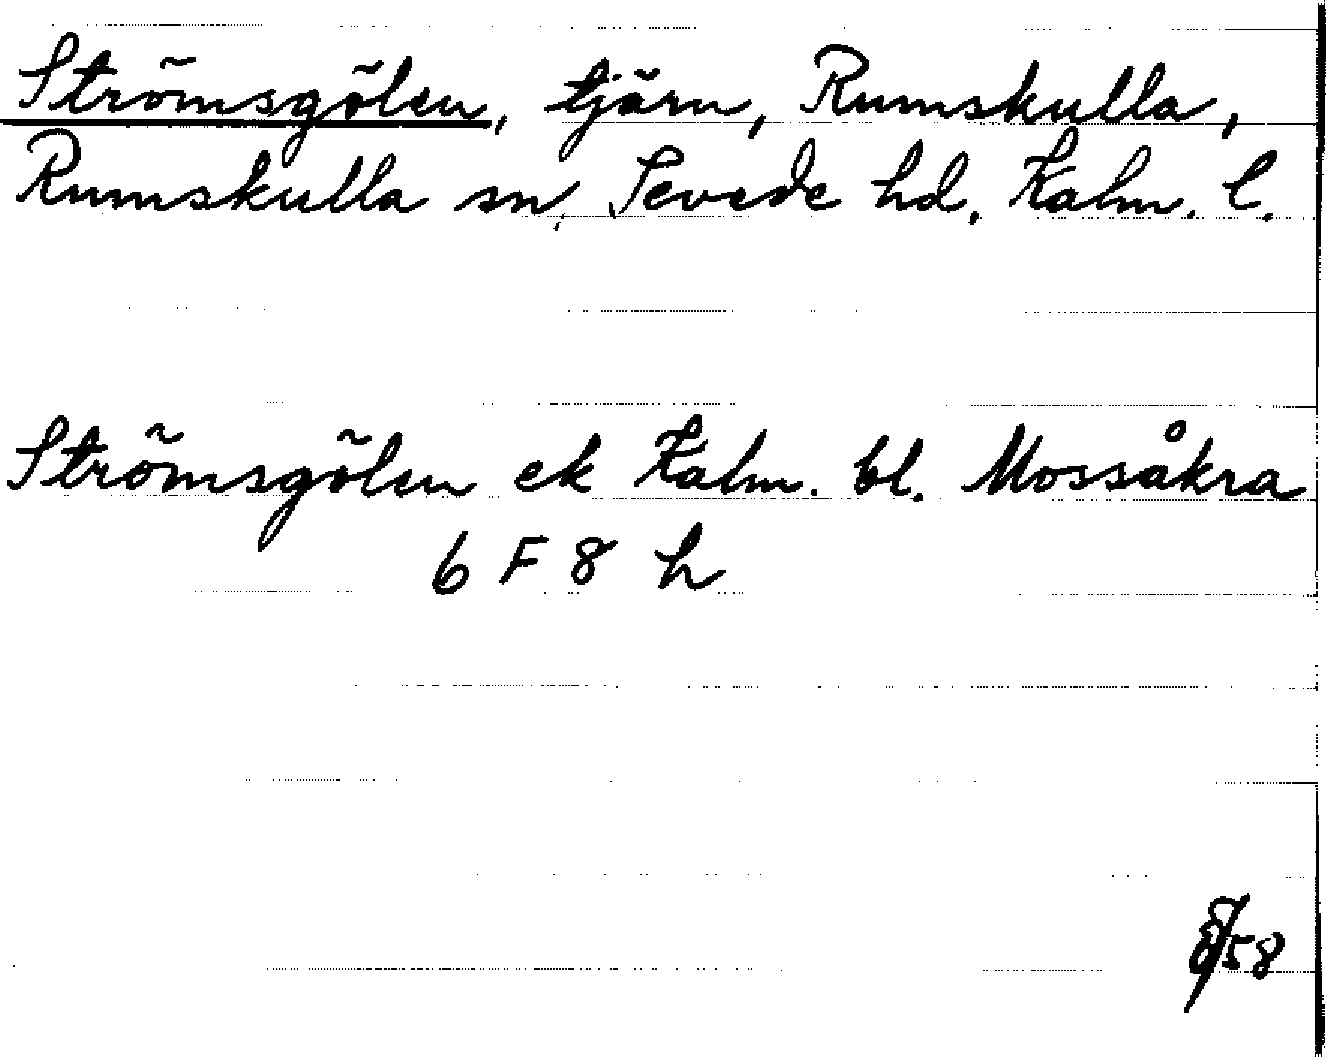 Strömsgölen, tjärn, Rumskulla,
Rumskulla sn, Sevede hd, Kalm. l.
Strömsgölen ek Kalm. bl. Mossåkra
6 F 8 h
58